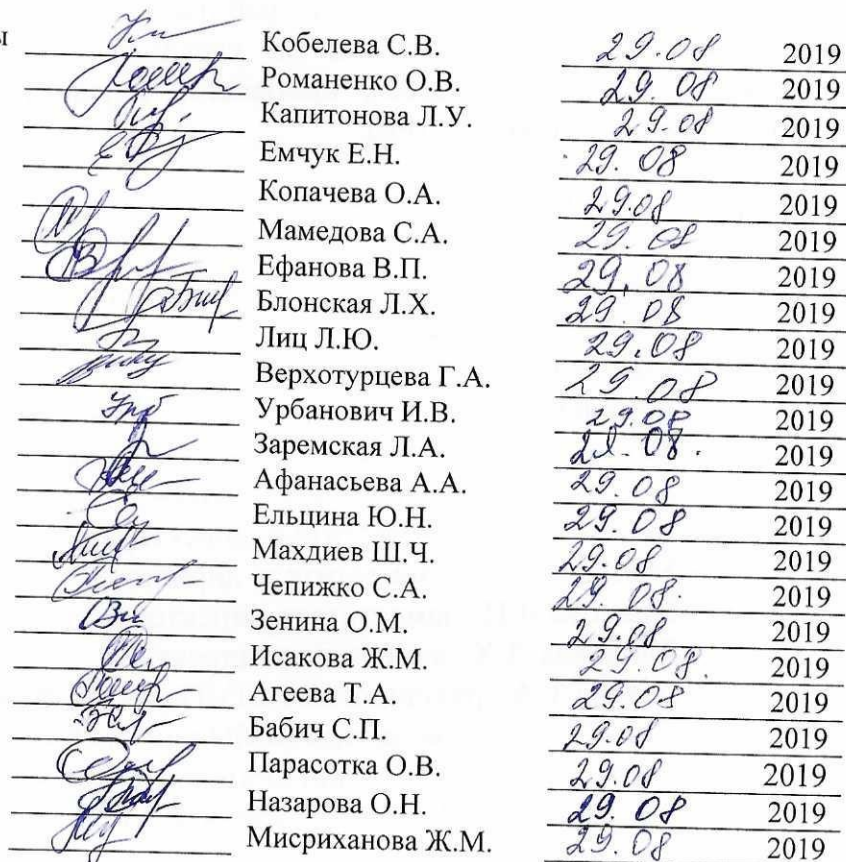 ы Кобелева С.В. 29.08 2019
Романенко О.В. 29.08 2019
Капитонова Л.У. 29.08 2019
Емчук Е.Н. 29.08 2019
Копачева О.А. 29.08 2019
Мамедова С.А. 29.08 2019
Ефанова В.П. 29.08 2019
Блонская Л.Х. 29.08 2019
Лиц Л.Ю. 29.08 2019
Верхотурцева Г.А. 29.08 2019
Урбанович И.В. 29.08 2019
Заремская Л.А. 29.08. 2019
Афанасьева А.А. 29.08 2019
Ельцина Ю.Н. 29.08 2019
Махдиев Ш.Ч. 29.08 2019
Чепижко С.А. 29.08. 2019
Зенина О.М. 29.08 2019
Исакова Ж.М. 29.08. 2019
Агеева Т.А. 29.08 2019
Бабич С.П. 29.08 2019
Парасотка О.В. 29.08 2019
Назарова О.Н. 29.08 2019
Мисриханова Ж.М. 29.08 2019